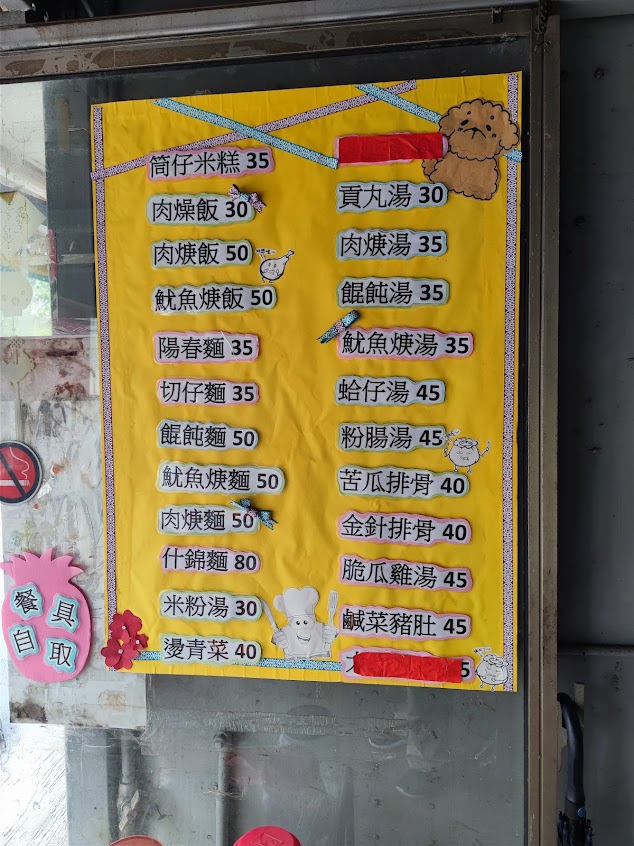 筒仔米糕 35
肉燥飯 30
肉焿飯 50
魷魚焿飯 50
陽春麵 35
切仔麵 35
餛飩麵 50
魷魚焿麵 50
肉焿麵 50
什錦麵 80
米粉湯 30
燙青菜 40
貢丸湯 30
肉焿湯 35
餛飩湯 35
魷魚焿湯 35
蛤仔湯 45
粉腸湯 45
苦瓜排骨 40
金針排骨 40
脆瓜雞湯 45
鹹菜豬肚 45
5
餐具
自取